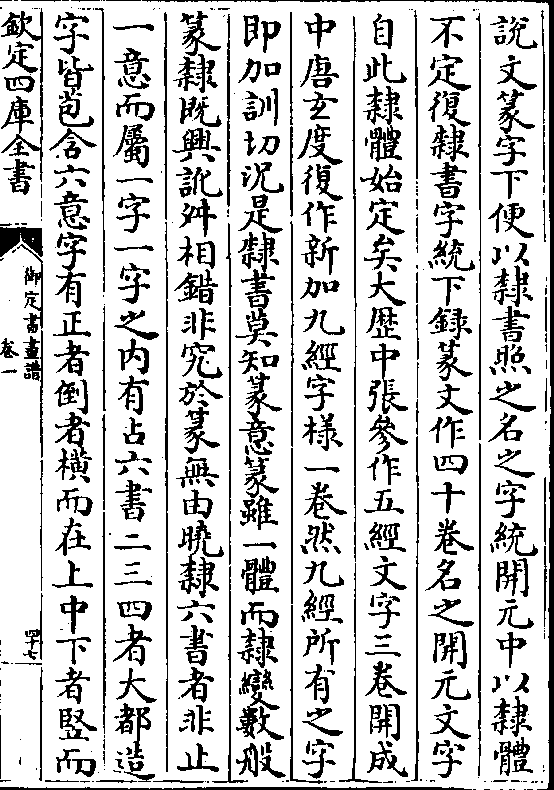 說文篆字下便以隸書照之名之字統開元中以隸體
不定復隸書字統下録篆文作四十卷名之開元文字
自此隸體始定矣大歴中張參作五經文字三卷開成
中唐玄度復作新加九經字様一卷然九經所有之字
即加訓切況是隸書莫知篆意篆雖一體而隸變數般
篆隸既興訛舛相錯非究於篆無由曉隸六書者非止
一意而屬一字一字之内有占六書二三四者大都造
字皆苞含六意字有正者倒者横而在上中下者竪而
欽定四庫全書
御定書畫譜
卷一
四十七